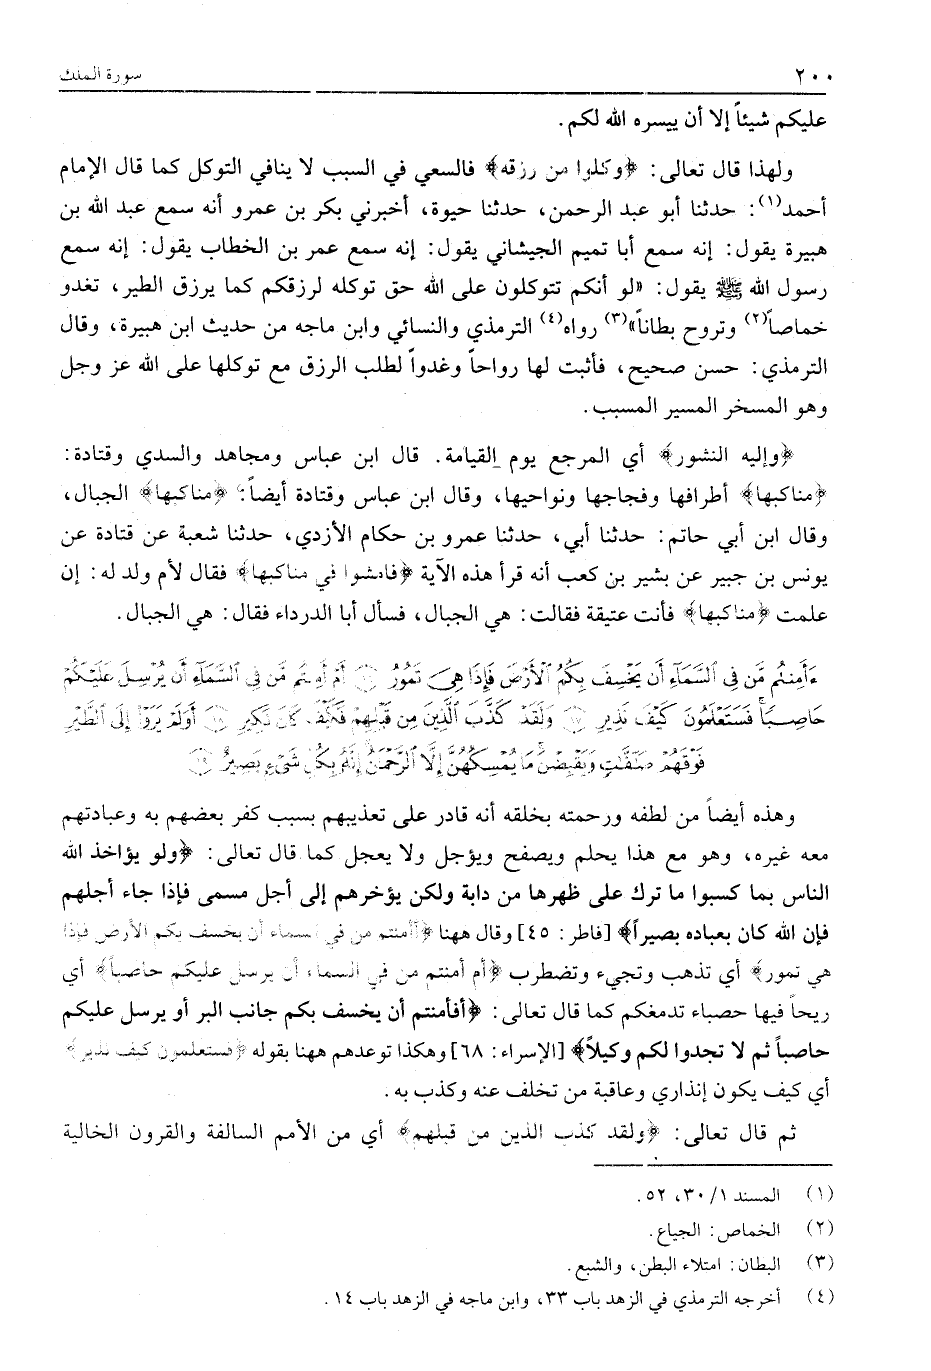 ٢٠٠ سورة الملك
عليكم شيئاً إلا أن ييسره الله لكم.
ولهذا قال تعالى: ﴿وكلوا من رزقه﴾ فالسعي في السبب لا ينافي التوكل كما قال الإمام
أحمد(١): حدثنا أبو عبد الرحمن، حدثنا حيوة، أخبرني بكر بن عمرو أنه سمع عبد الله بن
هبيرة يقول: إنه سمع أبا تميم الجيشاني يقول: إنه سمع عمر بن الخطاب يقول: إنه سمع
رسول الله ﷺ يقول: «لو أنكم تتوكلون على الله حق توكله لرزقكم كما يرزق الطير، تغدو
خماصاً(٢) وتروح بطاناً»(٣) رواه(٤) الترمذي والنسائي وابن ماجه من حديث ابن هبيرة، وقال
الترمذي: حسن صحيح، فأثبت لها رواحاً وغدواً لطلب الرزق مع توكلها على الله عز وجل
وهو المسخر المسير المسبب.
﴿وإليه النشور﴾ أي المرجع يوم القيامة. قال ابن عباس ومجاهد والسدي وقتادة:
﴿مناكبها﴾ أطرافها وفجاجها ونواحيها، وقال ابن عباس وقتادة أيضاً: ﴿مناكبها﴾ الجبال،
وقال ابن أبي حاتم: حدثنا أبي، حدثنا عمرو بن حكام الأزدي، حدثنا شعبة عن قتادة عن
يونس بن جبير عن بشير بن كعب أنه قرأ هذه الآية ﴿فامشوا في مناكبها﴾ فقال لأم ولد له: إن
علمت ﴿مناكبها﴾ فأنت عتيقة فقالت: هي الجبال، فسأل أبا الدرداء فقال: هي الجبال.
ءَأَمِنتُم مَّن فِي ٱلسَّمَآءِ أَن يَخْسِفَ بِكُمُ ٱلْأَرْضَ فَإِذَا هِيَ تَمُورُ ﴿١٦﴾ أَمْ أَمِنتُم مَّن فِي ٱلسَّمَآءِ أَن يُرْسِلَ عَلَيْكُمْ
حَاصِبًا ۖ فَسَتَعْلَمُونَ كَيْفَ نَذِيرِ ﴿١٧﴾ وَلَقَدْ كَذَّبَ ٱلَّذِينَ مِن قَبْلِهِمْ فَكَيْفَ كَانَ نَكِيرِ ﴿١٨﴾ أَوَلَمْ يَرَوْا إِلَى ٱلطَّيْرِ
فَوْقَهُمْ صَٰٓفَّٰتٍ وَيَقْبِضْنَ ۚ مَا يُمْسِكُهُنَّ إِلَّا ٱلرَّحْمَٰنُ ۚ إِنَّهُۥ بِكُلِّ شَىْءٍۭ بَصِيرٌ ﴿١٩﴾
وهذه أيضاً من لطفه ورحمته بخلقه أنه قادر على تعذيبهم بسبب كفر بعضهم به وعبادتهم
معه غيره، وهو مع هذا يحلم ويصفح ويؤجل ولا يعجل كما قال تعالى: ﴿ولو يؤاخذ الله
الناس بما كسبوا ما ترك على ظهرها من دابة ولكن يؤخرهم إلى أجل مسمى فإذا جاء أجلهم
فإن الله كان بعباده بصيراً﴾ [فاطر: ٤٥] وقال ههنا ﴿أأمنتم من في السماء أن يخسف بكم الأرض فإذا
هي تمور﴾ أي تذهب وتجيء وتضطرب ﴿أم أمنتم من في السماء أن يرسل عليكم حاصباً﴾ أي
ريحاً فيها حصباء تدمغكم كما قال تعالى: ﴿أفأمنتم أن يخسف بكم جانب البر أو يرسل عليكم
حاصباً ثم لا تجدوا لكم وكيلاً﴾ [الإسراء: ٦٨] وهكذا توعدهم ههنا بقوله ﴿فستعلمون كيف نذير﴾
أي كيف يكون إنذاري وعاقبة من تخلف عنه وكذب به.
ثم قال تعالى: ﴿ولقد كذب الذين من قبلهم﴾ أي من الأمم السالفة والقرون الخالية
(١) المسند ١/ ٣٠، ٥٢.
(٢) الخماص: الجياع.
(٣) البطان: امتلاء البطن، والشبع.
(٤) أخرجه الترمذي في الزهد باب ٣٣، وابن ماجه في الزهد باب ١٤.